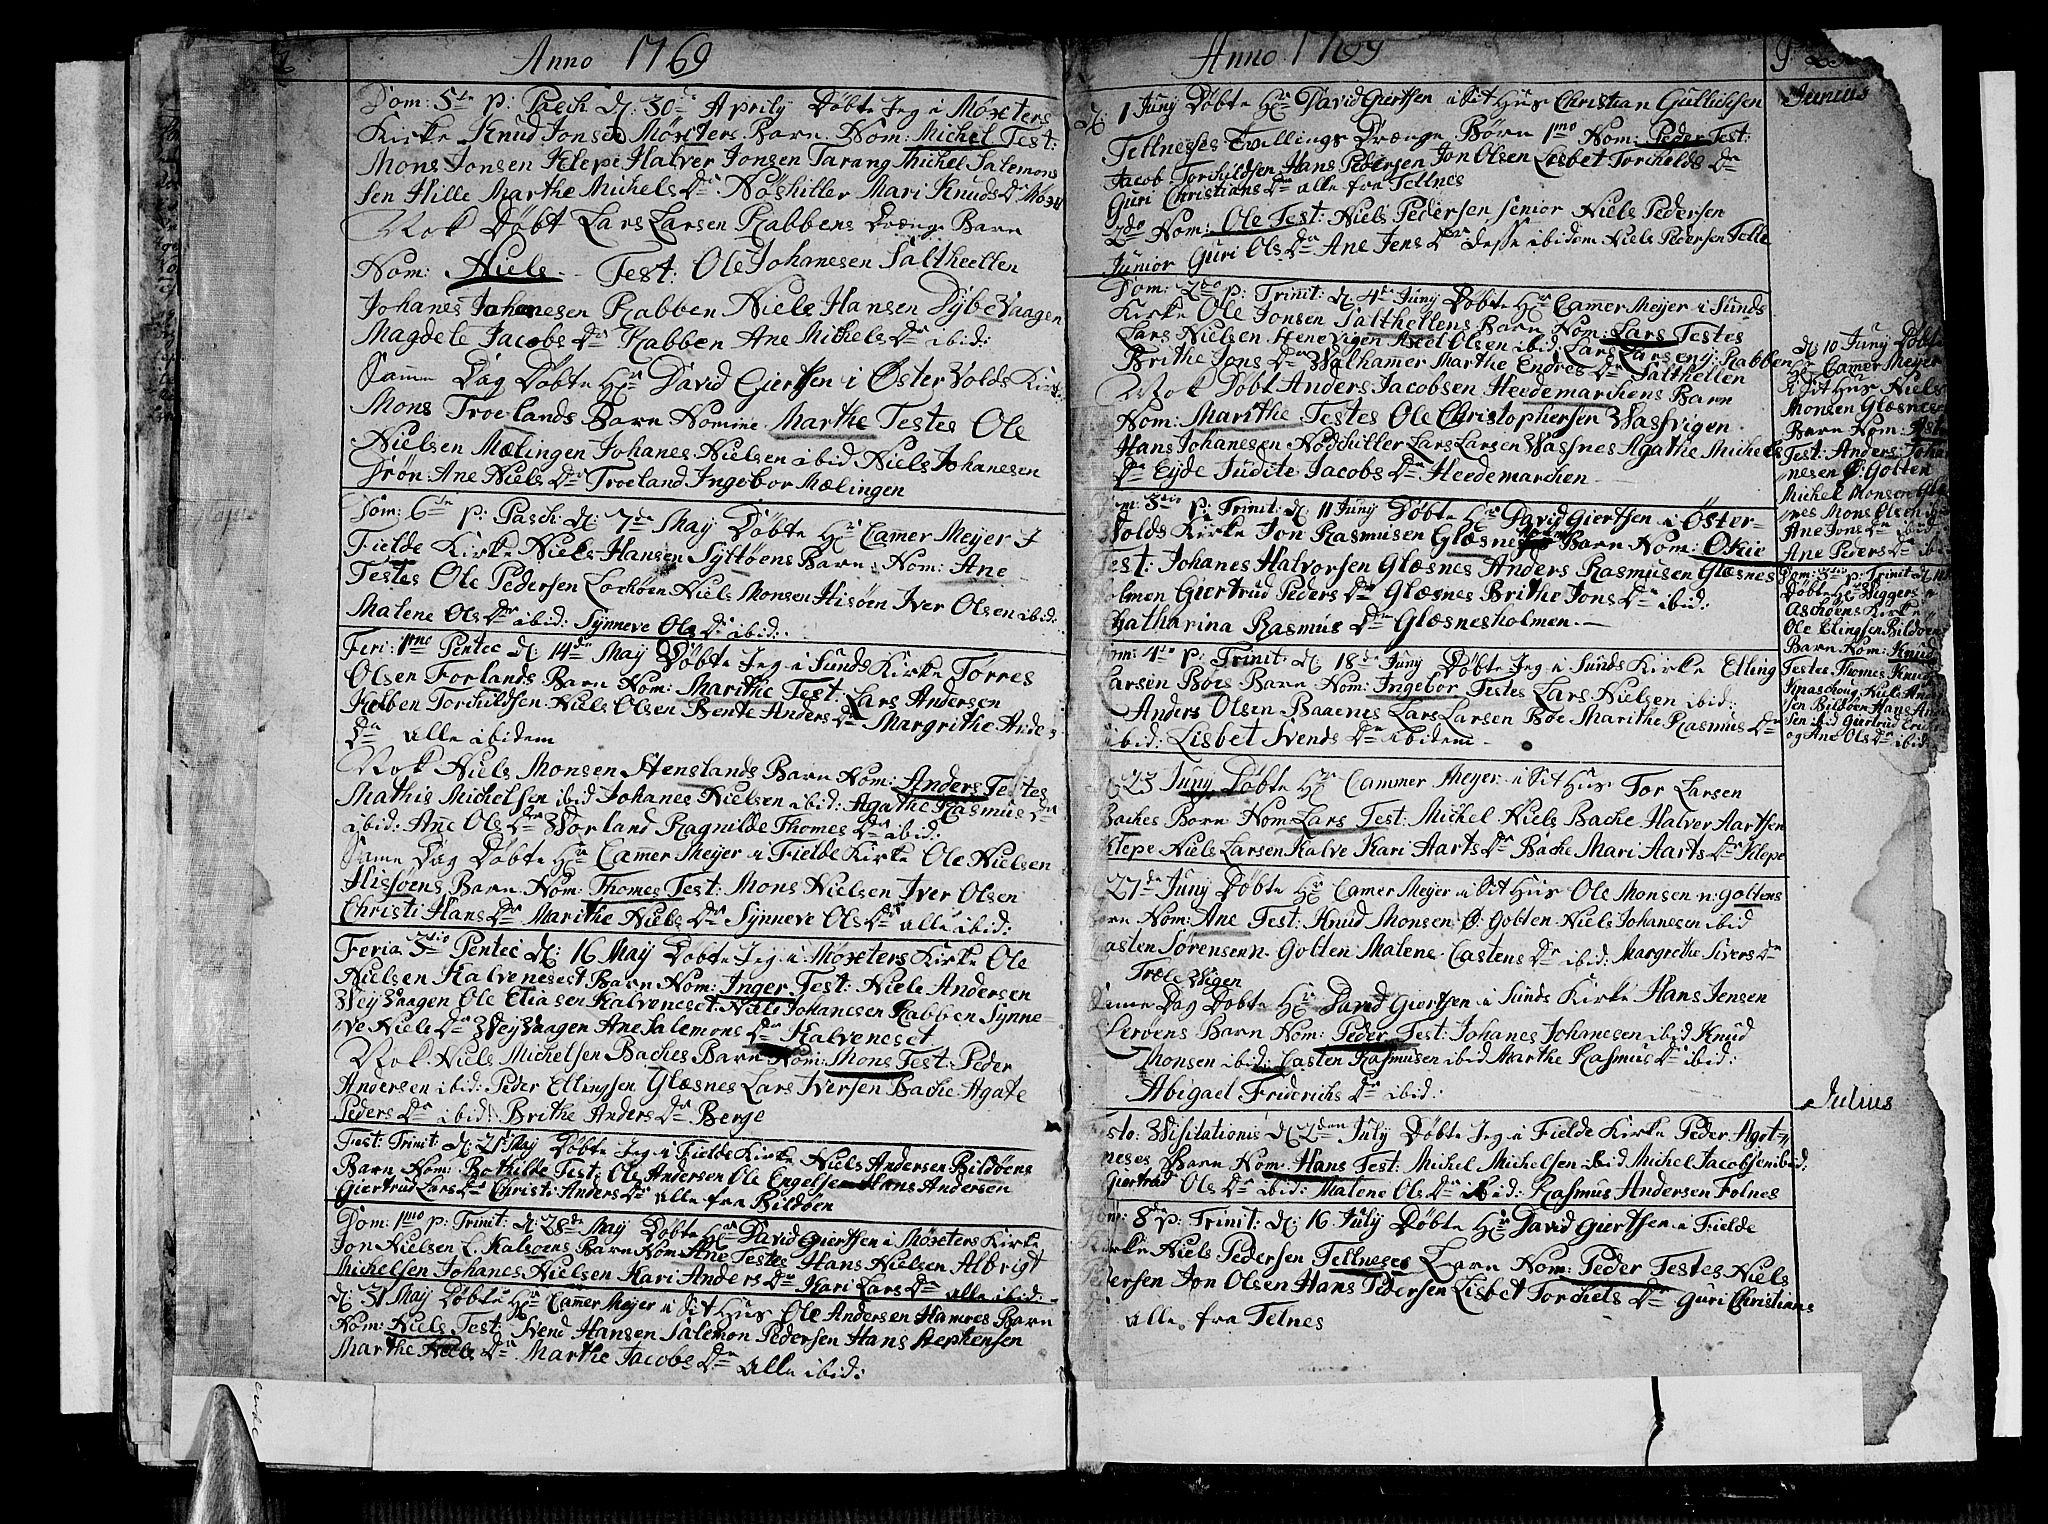 Anno 1769
Dom: 5te p: Pasch d: 30de Aprily Døbte Jeg i Møxters
Kirke Knud Jonsen Møxters Barn Nom: Michel Test:
Mons Jonsen Klepe Halver Jonsen Tarang Michel Salemons
sen Hille Marthe Michels Dr Nøshiller Mari Knuds Dr Møxt
Nok Døbt Lars Larsen Rabbens Drænge Barn
Nom: Niels Test: Ole Johanesen Saltheellen
Johanes Johanesen Rabben Niels Hansen Dybe Vaagen
Magdele Jacobs Dr Rabben Ane Michels Dr ibid:
Samme Dag Døbte Hr David Giertsen i Øster Volds Kirk:
Mons Troelands Barn Nomine Marthe Testes Ole
Nielsen Mælingen Johanes Nielsen ibid Niels Johanesen
Trøn Ane Niels Dr Troeland Ingebor Mælingen
Majus
Dom: 6te p: Pasch d: 7de May Døbte Hr Camer Meyer I
Fielde Kirke Niels Hansen Syltøens Barn Nom: Ane
Testes Ole Pedersen Lochøen Niels Monsen Hisøen Iver Olsen ibid:
Malene Ols Dr ibid: Synneve Ols Dr ibid:
Feri: 1mo Pentec d: 14de May Døbte Jeg i Sunds Kirke Tørres
Olsen Forlands Barn Nom: Marithe Test: Lars Andersen
Kolben Torchildsen Niels Olsen Bente Anders Dr Margrithe Anders
Dr alle ibidem
Nok Niels Monsen Stenslands Barn Nom: Anders Testes
Mathis Michelsen ibid Johanes Nielsen ibid: Agathe Rasmus Dr
ibid: Ane Ols Dr Worland Ragnilde Thomes Dr ibid:
Same Dag Døbte Hr Camer Meyer i Fielde Kirke Ole Nielsen
Hissøens Barn Nom: Thomes Test: Mons Nielsen Iver Olsen
Christi Hans Dr Marithe Niels Dr Synneve Ols Dr alle ibid:
Feria 3tio Pentec d: 16 May Døbte Jeg i Møxters Kirke Ole
Nielsen Kalveneset Barn Nom: Inger Test: Niels Andersen
Vey Vaagen Ole Eliasen Kalveneset Niels Johanesen Rabben Synne-
ve Niels Dr Vey Vaagen Ane Salemons Dr Kalveneset
Nok Niels Michelsen Baches Barn Nom: Mons Test: Peder
Andersen ibid: Peder Ellingsen Glæsnes Lars Iversen Bache Agate
Peders Dr ibid: Brithe Anders Dr Berge
Fest: Trinit d: 21 May Døbte Jeg i Fielde Kirke Niels Andersen Bildøens
Barn Nom: Bothilde Test: Ole Andersen Ole Engelsen Hans Andersen
Giertrud Lars Dr Christi Anders Dr alle fra Bildøen
Dom: 1mo p: Trinit: d: 28de May Døbte Hr David Giertsen i Møxters Kirke
Jon Nielsen L. Kalsøens Barn Nom: Ane Testes Hans Nielsen Albrigt
Michelsen Johanes Nielsen Kari Anders Dr Kari Lars Dr alle ibid:
d: 31 May Døbte Hr Camer Meyer i Sit Hus Ole Andersen Hamres Barn
Nom: Niels Test: Svend Hansen Salemon Pedersen Hans Stephensen
Marthe Niels Dr Marthe Jacobs Dr alle ibid:
Anno 1769
Junius
d: 1 Juny Døbte Hr David Giertsen i Sit Hus Christian Gullichsen
Tellneses Tvillings Drænge Børn 1mo Nom: Peder Test:
Jacob Torchildsen Hans Pedersen Jon Olsen Lisbet Torchelds Dr
Guri Christians Dr alle fra Tellnes
2do Nom: Ole Test: Niels Pedersen senior Niels Pedersen
Junior Guri Ols Dr Ane Jens Dr desse ibidem Niels Pedersen Tolle
Dom: 2do p: Trinit: d: 4de Juny Døbte Hr Camer Meyer i Sunds
Kirke Ole Jonsen Salthellens Barn Nom: Lars Testes
Lars Nielsen Stenevigen Axel Olsen ibid: Lars Larsen Rabben
Brithe Jons Dr Walhamer Marthe Endres Dr Salthellen
Nok Døbt Anders Jacobsen Heedemarchens Barn
Nom: Marithe Testes Ole Christophersen Vasvigen
Hans Johanesen Nodhiller Lars Larsen Vassnes Agathe Michels
Dr Eyde Judite Jacobs Dr Heedemarchen
Dom: 3tio p: Trinit: d: 11 Juny Døbte Hr David Giertsen i Øster-
Volds Kirke Jon Rasmusen Glæsnes Barn Nom: Okie
Test: Johanes Halvorsen Glæsnes Anders Rasmusen Glæsnes
holmen Giertrud Peders Dr Glæsnes Brithe Jons Dr ibid:
Chatharina Rasmus Dr Glæsnesholmen
Dom: 4to p: Trinit: d: 18de Juny Døbte Jeg i Sunds Kirke Elling
Larsen Boes Barn Nom: Ingebor Testes Lars Nielsen ibid:
Anders Olsen Baaenes Lars Larsen Boe Marithe Rasmus Dr
ibid: Lisbet Svends Dr ibidem
d: 23 Juny Døbte Hr Cammer Meyer i Sit Hus Tor Larsen
Baches Barn Nom: Lars Test: Michel Niels Bache Halver Aartsen
Klepe Niels Larsen Kalve Kari Aarts Dr Bache Mari Aarts Dr Klepe
27de Juny Døbte Hr Camer Meyer i Sit Hus Ole Monsen n: Goltens
Barn Nom: Ane Test: Knud Monsen Ø: Golten Niels Johanesen ibid
Casten Sørensen n. Golten Malene Castens Dr ibid: Margrethe Sivers Dr
Træle Vigen
Same Dag Døbte Hr David Giertsen i Sunds Kirke Hans Jensen
Lerøens Barn Nom: Peder Test: Johanes Johanesen ibid Knud
Monsen ibid: Casten Rasmusen ibid Marthe Rasmus Dr ibid:
Abigael Friderichs Dr ibid:
Julius
Festo: Visitationis d: 2den July Døbte Jeg i Fielde Kirke Peder Agot-
neses Barn Nom: Hans Test: Michel Michelsen ibid Michel Jacobsen ibid.
Giertrud Ols Dr ibid: Malene Ols Dr ibid: Rasmus Andersen Folnes
Dom: 8de p: Trinit: d: 16 July Døbte Hr David Giertsen i Fielde
Kirke Niels Pedersen Tellneses Barn Nom: Peder Testes Niels
Pedersen Jon Olsen Hans Pedersen Lisbet Torchels Dr Guri Christians
alle fra Telnes
d: 10 Juny Døbte
Hr Camer Meyer
i Sit Hus Niels
Monsen Glæsnes
Barn Nom:
Test: Anders Joha
nesen Ø: Golten
Michel Monsen Glæ
nes Mons Olsen
Ane Jons Dr ibid
Ane Peders Dr ibi
Dom: 3tio p: Trinit d: 11
Døbte Hr Wiggers i
Aschøens Kirke
Ole Elingsen Bildøens
Barn Nom: Knud
Testes Thomes Knud
Knaschoug Niels And
sen Bildøen Hans And
sen ibid Giertrud
og Ane Ols Dr ibid: